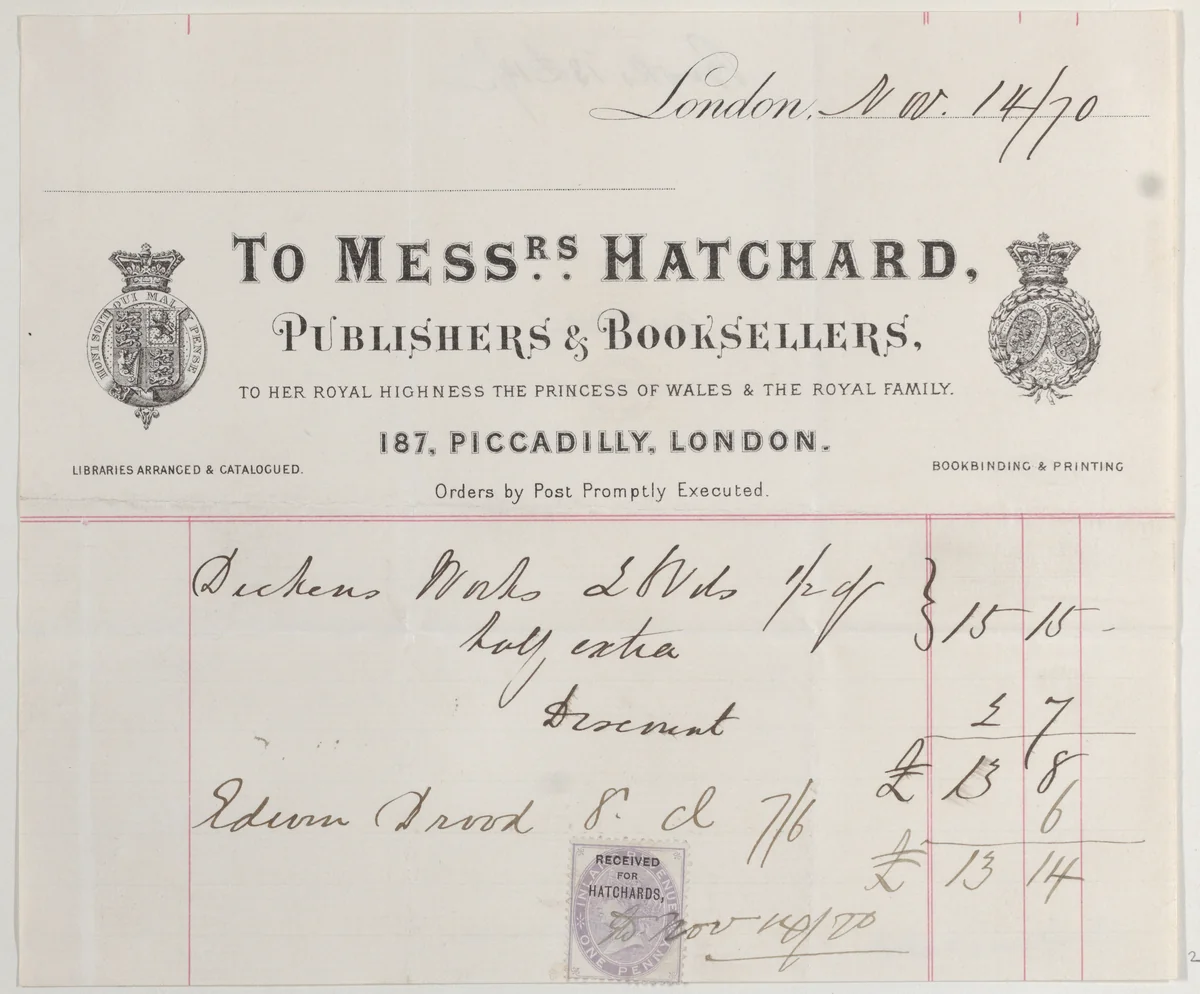 London, Nov. 14/70
TO MESSRS HATCHARD,
PUBLISHERS & BOOKSELLERS,
HONI SOIT QUI MAL Y PENSE
TO HER ROYAL HIGHNESS THE PRINCESS OF WALES & THE ROYAL FAMILY.
187, PICCADILLY, LONDON.
LIBRARIES ARRANGED & CATALOGUED.
BOOKBINDING & PRINTING
Orders by Post Promptly Executed.
Dickens Works Vols 1/2 cf } 15 15 -
half extra
Discount 2 7
£ 13 8
Edwin Drood 8º cl 7/6 6
£ 13 14
INLAND REVENUE
RECEIVED
FOR
HATCHARDS,
Nov 14/70
ONE PENNY